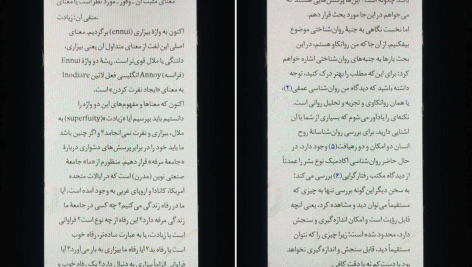 می‌خواهم در این‌جا مورد بحث قرار دهم.
اما نخست نگاهی به جنبهٔ روان‌شناختی موضوع
بیفکنیم. از آن‌جا که من روانکاو هستم، در این
بحث بارها به جنبه‌های روان‌شناختی اشاره خواهم
کرد؛ برای این‌که مطلب را بهتر درک کنید، توجه
داشته باشید که دیدگاه من روان‌شناسی عمقی(۴)،
یا همان روانکاوی و تجزیه و تحلیل روانی است.
نکته‌ای را یادآور می‌شوم که بسیاری از شما با آن
آشنایی دارید. برای بررسی روان‌شناسانهٔ روح
انسان دو امکان و دو رهیافت(۵) وجود دارد. در
حال حاضر روان‌شناسی آکادمیک نوع بشر را عمدتاً
از دیدگاه مکتب رفتارگرایی(۶) بررسی می‌کند؛
به سخن دیگر این گونه بررسی تنها به چیزی که
مستقیماً می‌توان دید و مشاهده کرد، یعنی آنچه
قابل رؤیت است و امکان اندازه‌گیری و سنجش
دارد، محدود شده است؛ زیرا چیزی را که نتوان
مستقیماً دید، قابل سنجش و اندازه‌گیری نخواهد
بود یا دست‌کم نه با دقت کافی.
معنای مثبت آن - وفور - مورد نظر است یا معنای
منفی آن: زیادت.
اکنون به واژهٔ بیزاری (ennui) برگردیم. معنای
اصلی این لغت از معنای متداول آن یعنی بیزاری،
دلتنگی یا ملال قوی‌تر است. ریشهٔ دو واژهٔ Ennui
(فرانسه) و Annoy انگلیسی فعل لاتین Inodiare
به معنای «ایجاد نفرت کردن» است.
اکنون که معناها و مفهوم‌های این دو واژه را
دانستیم باید بپرسیم آیا «زیادت» (superfuity) به
ملال، بیزاری و نفرت نمی‌انجامد؟ و اگر چنین باشد
ما باید خود را در برابر پرسش‌های دشواری دربارهٔ
«جامعهٔ مرفه» قرار دهیم. منظورم از «ما» جامعهٔ
صنعتی نوین (مدرن) است که در ایالات متحده
امریکا، کانادا و اروپای غربی به وجود آمده است. آیا
ما در رفاه زندگی می‌کنیم؟ چه کسی در جامعهٔ ما
زندگی مرفه دارد؟ این رفاه از چه نوع است؟ فراوانی
است یا زیادت، یا به عبارت ساده‌تر، رفاه خوب
است یا رفاه بد؟ آیا رفاه ما بیزاری به بار می‌آورد؟ آیا
فراوانی الزاماً بیزاری به دنبال دارد؟ یک رفاه خوب و